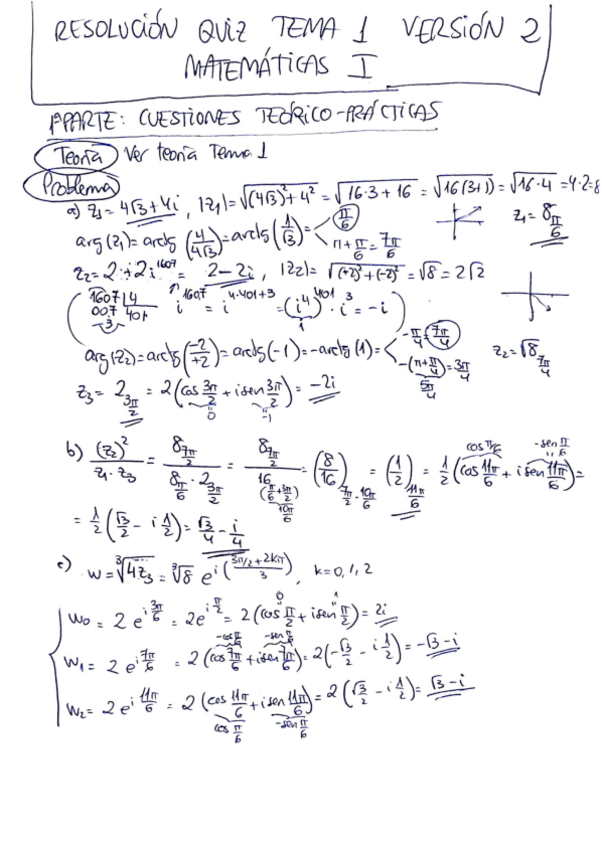 RESOLUCIÓN QUIZ TEMA 1 VERSIÓN 2
MATEMÁTICAS I
1ª PARTE: CUESTIONES TEÓRICO-PRÁCTICAS
Teoría Ver teoría Tema 1
Problema
a) z₁ = 4√3 + 4i, |z₁| = √((4√3)² + 4²) = √(16·3 + 16) = √(16(3+1)) = √(16·4) = 4·2 = 8
arg(z₁) = arctg(4/4√3) = arctg(1/√3) = < π/6 z₁ = 8_{π/6}
π + π/6 = 7π/6
z₂ = 2 + 2i¹⁶⁰⁷ = 2 - 2i, |z₂| = √((+2)² + (-2)²) = √8 = 2√2
1607 | 4 i¹⁶⁰⁷ = i^{4·401+3} = (i⁴)⁴⁰¹ · i³ = -i
007 401 1
3
arg(z₂) = arctg(-2/+2) = arctg(-1) = -arctg(1) = < -π/4 = 7π/4 z₂ = √8_{7π/4}
-(π + π/4) = 3π/4
5π/4
z₃ = 2_{3π/2} = 2(cos 3π/2 + i sen 3π/2) = -2i
0 -1
b) (z₂)²/(z₁·z₃) = 8_{7π/2}/(8_{π/6}·2_{3π/2}) = 8_{7π/2}/16_{(π/6+3π/2)} = (8/16)_{7π/2-10π/6} = (1/2)_{11π/6} = 1/2 (cos 11π/6 + i sen 11π/6) =
10π/6 cos π/6 -sen π/6
= 1/2 (√3/2 - i 1/2) = √3/4 - i/4
c) w = ∛(4z₃) = ∛8 e^{i((3π/2+2kπ)/3)}, k=0,1,2
w₀ = 2e^{i 3π/6} = 2e^{i π/2} = 2(cos π/2 + i sen π/2) = 2i
0 1
w₁ = 2e^{i 7π/6} = 2(cos 7π/6 + i sen 7π/6) = 2(-√3/2 - i 1/2) = -√3 - i
-cos π/6 -sen π/6
w₂ = 2e^{i 11π/6} = 2(cos 11π/6 + i sen 11π/6) = 2(√3/2 - i 1/2) = √3 - i
cos π/6 -sen π/6